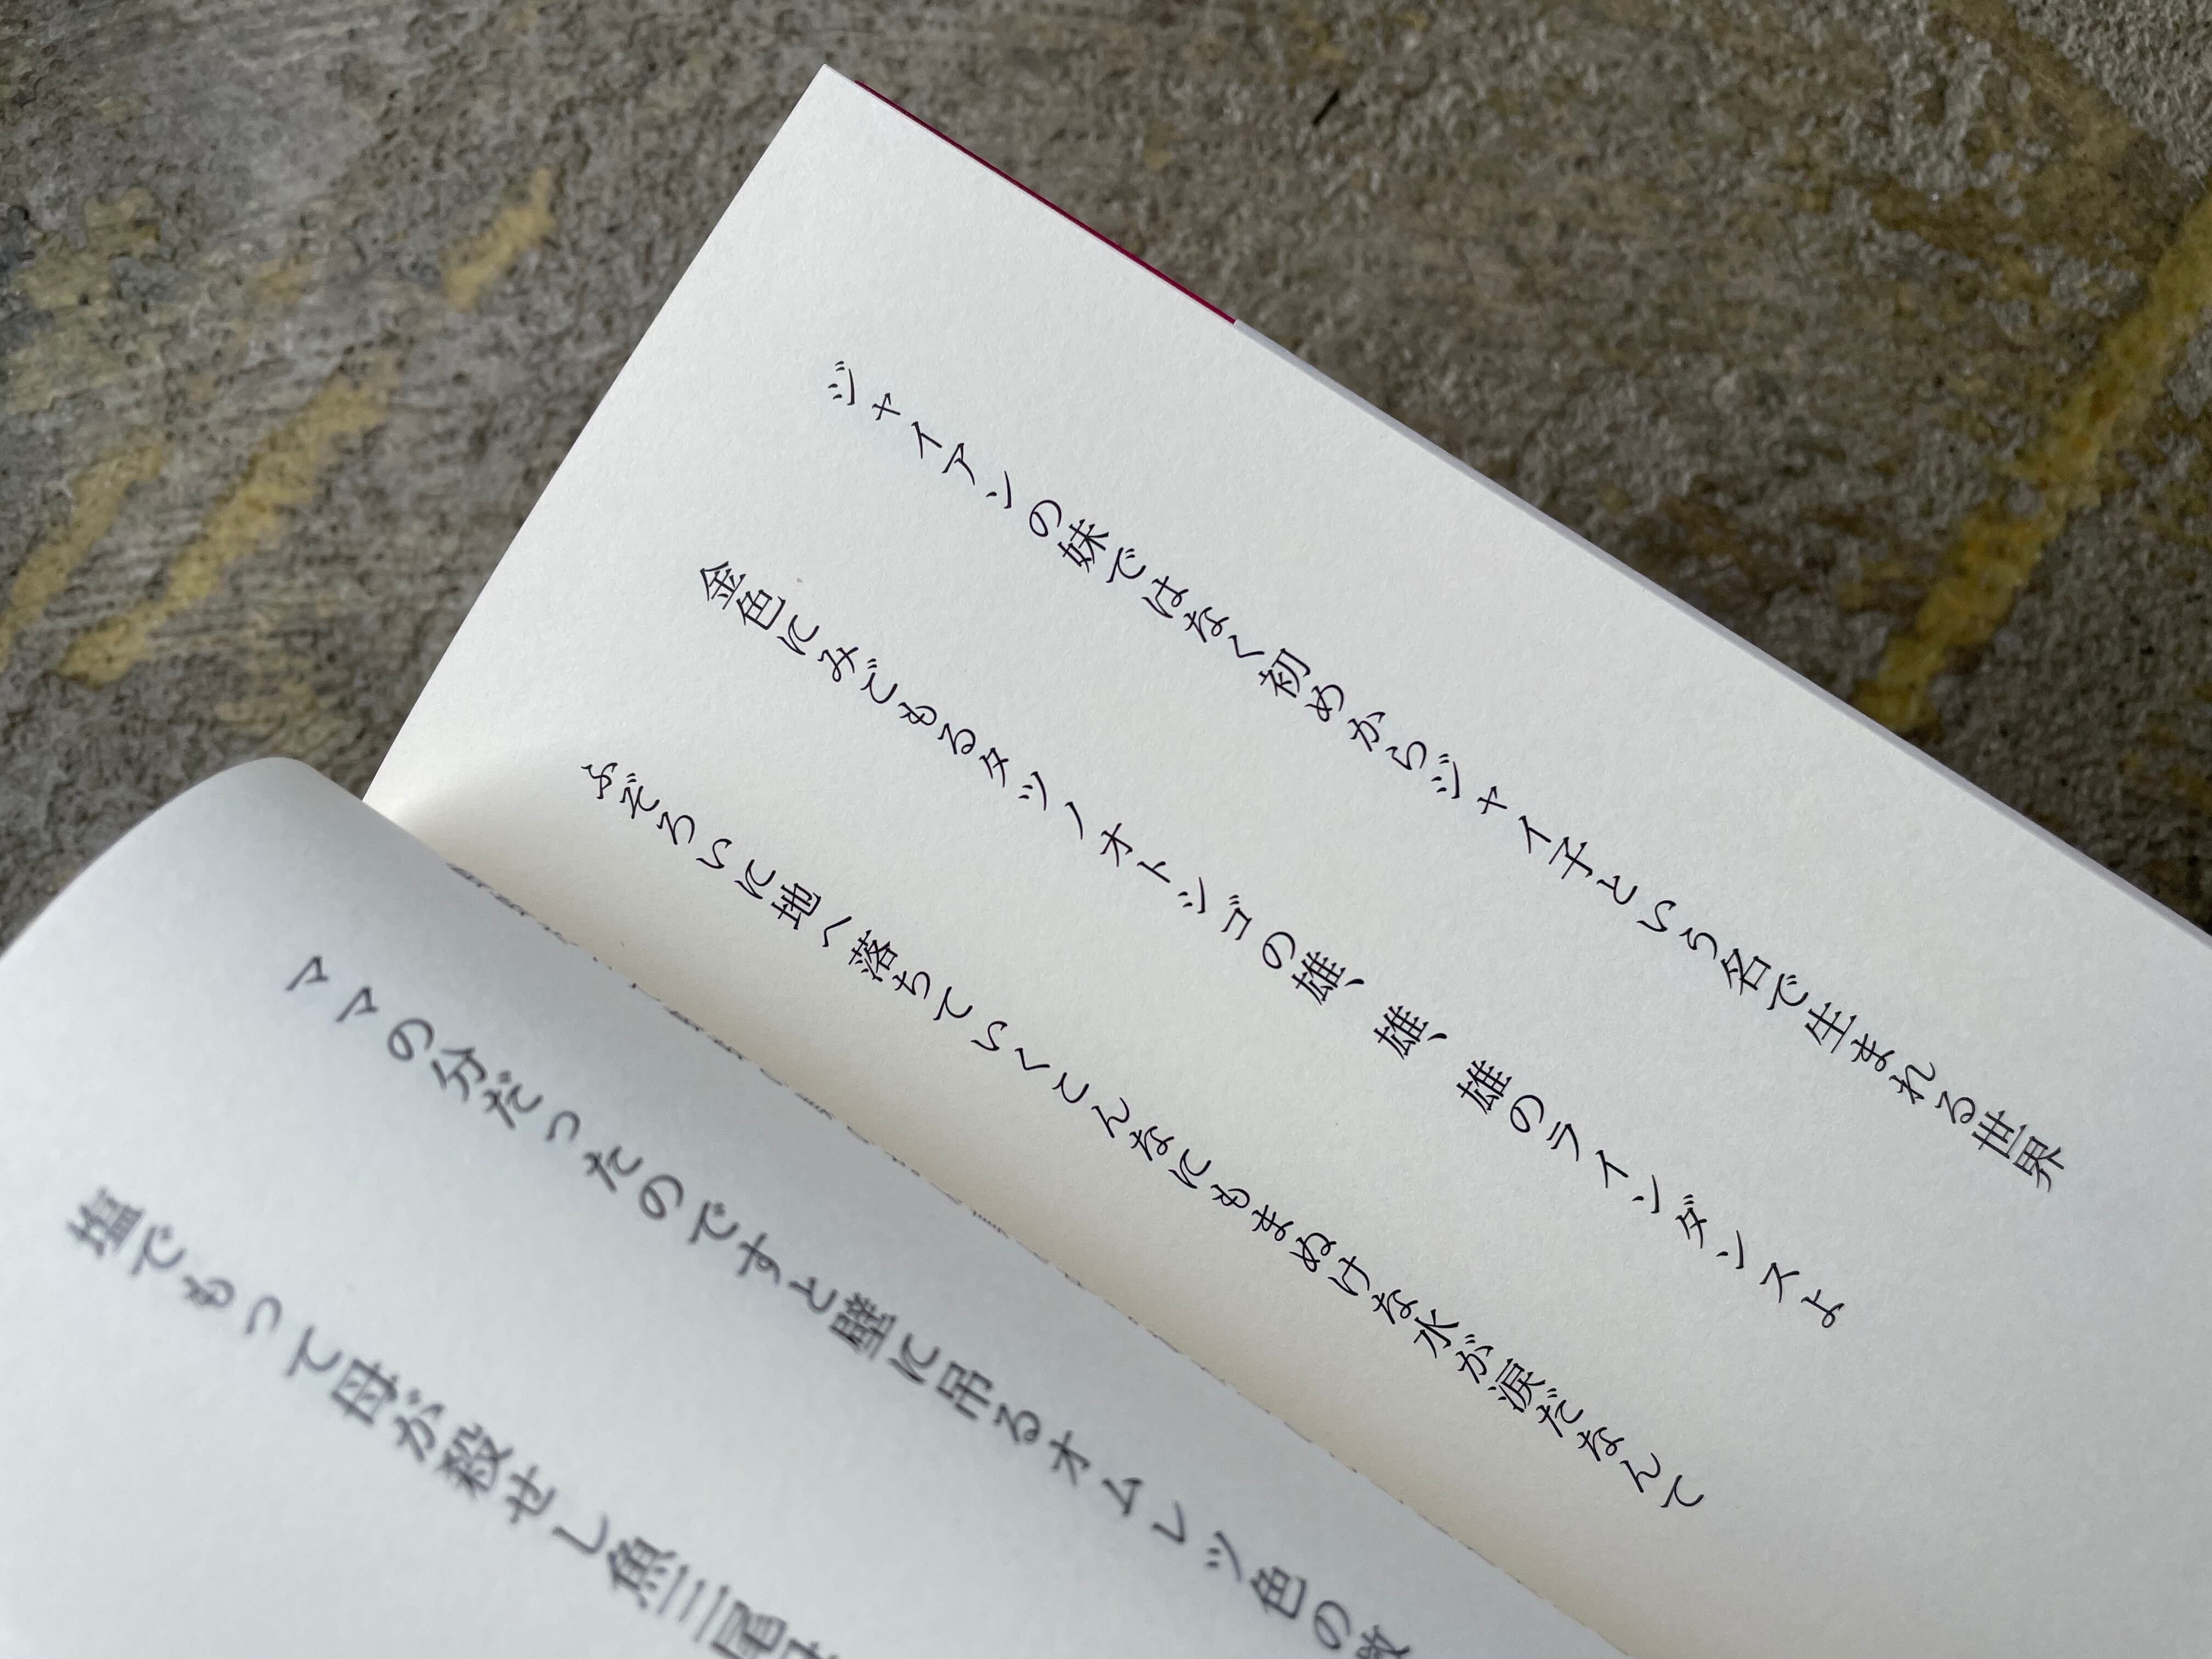 ジャイアンの妹ではなく初めからジャイ子という名で生まれる世界
金色にみごもるタツノオトシゴの雄、雄、雄のラインダンスよ
ふぞろいに地へ落ちていくこんなにもまぬけな水が涙だなんて
ママの分だったのですと壁に吊るオムレツ色の
塩でもって母が殺せし魚三尾